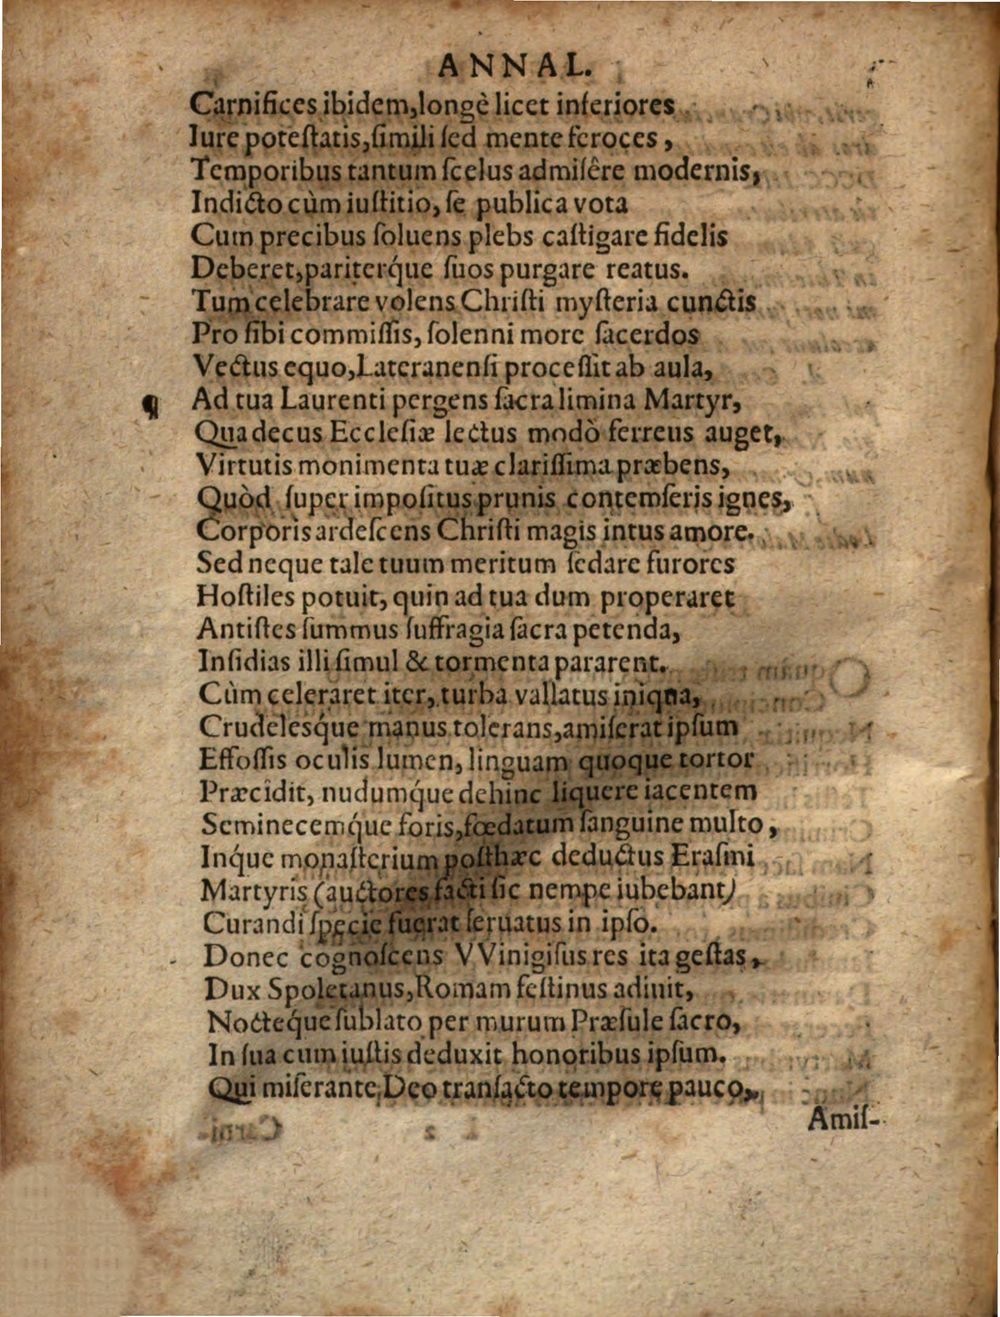 ANNAL.
Carnifices ibidem,longè licet inferiores
Iure poteſtatis,ſimili ſed mente feroces ,
Temporibus tantum ſcelus admiſêre modernis,
Indicto cùm iuſtitio, ſe publica vota
Cum precibus ſoluens plebs caſtigare fidelis
Deberet,pariterq́ue ſuos purgare reatus.
Tum celebrare volens Chriſti myſteria cunctis
Pro ſibi commiſſis, ſolenni more ſacerdos
Vectus equo,Lateranenſi proceſſit ab aula,
¶ Ad tua Laurenti pergens ſacra limina Martyr,
Qua decus Eccleſiæ lectus modò ferreus auget,
Virtutis monimenta tuæ clariſſima præbens,
Quòd ſuper impoſitus prunis contemſeris ignes,
Corporis ardeſcens Chriſti magis intus amore.
Sed neque tale tuum meritum ſedare furores
Hoſtiles potuit, quin ad tua dum properaret
Antiſtes ſummus ſuffragia ſacra petenda,
Inſidias illi ſimul & tormenta pararent.
Cùm celeraret iter, turba vallatus iniqna,
Crudeleśque manus tolerans,amiſerat ipſum
Effoſſis oculis lumen, linguam quoque tortor
Præcidit, nudumq́ue dehinc liquere iacentem
Seminecemq́ue foris,fœdatum ſanguine multo ,
Inq́ue monaſterium poſthæc deductus Eraſmi
Martyris (auctores facti ſic nempe iubebant)
Curandi ſpecie fuerat ſeruatus in ipſo.
Donec cognoſcens VVinigiſus res ita geſtas,
Dux Spoletanus,Romam feſtinus adiuit,
Nocteq́ue ſublato per murum Præſule ſacro,
In ſua cum iuſtis deduxit honoribus ipſum.
Qui miſerante Deo tranſacto tempore pauco,
Amiſ-